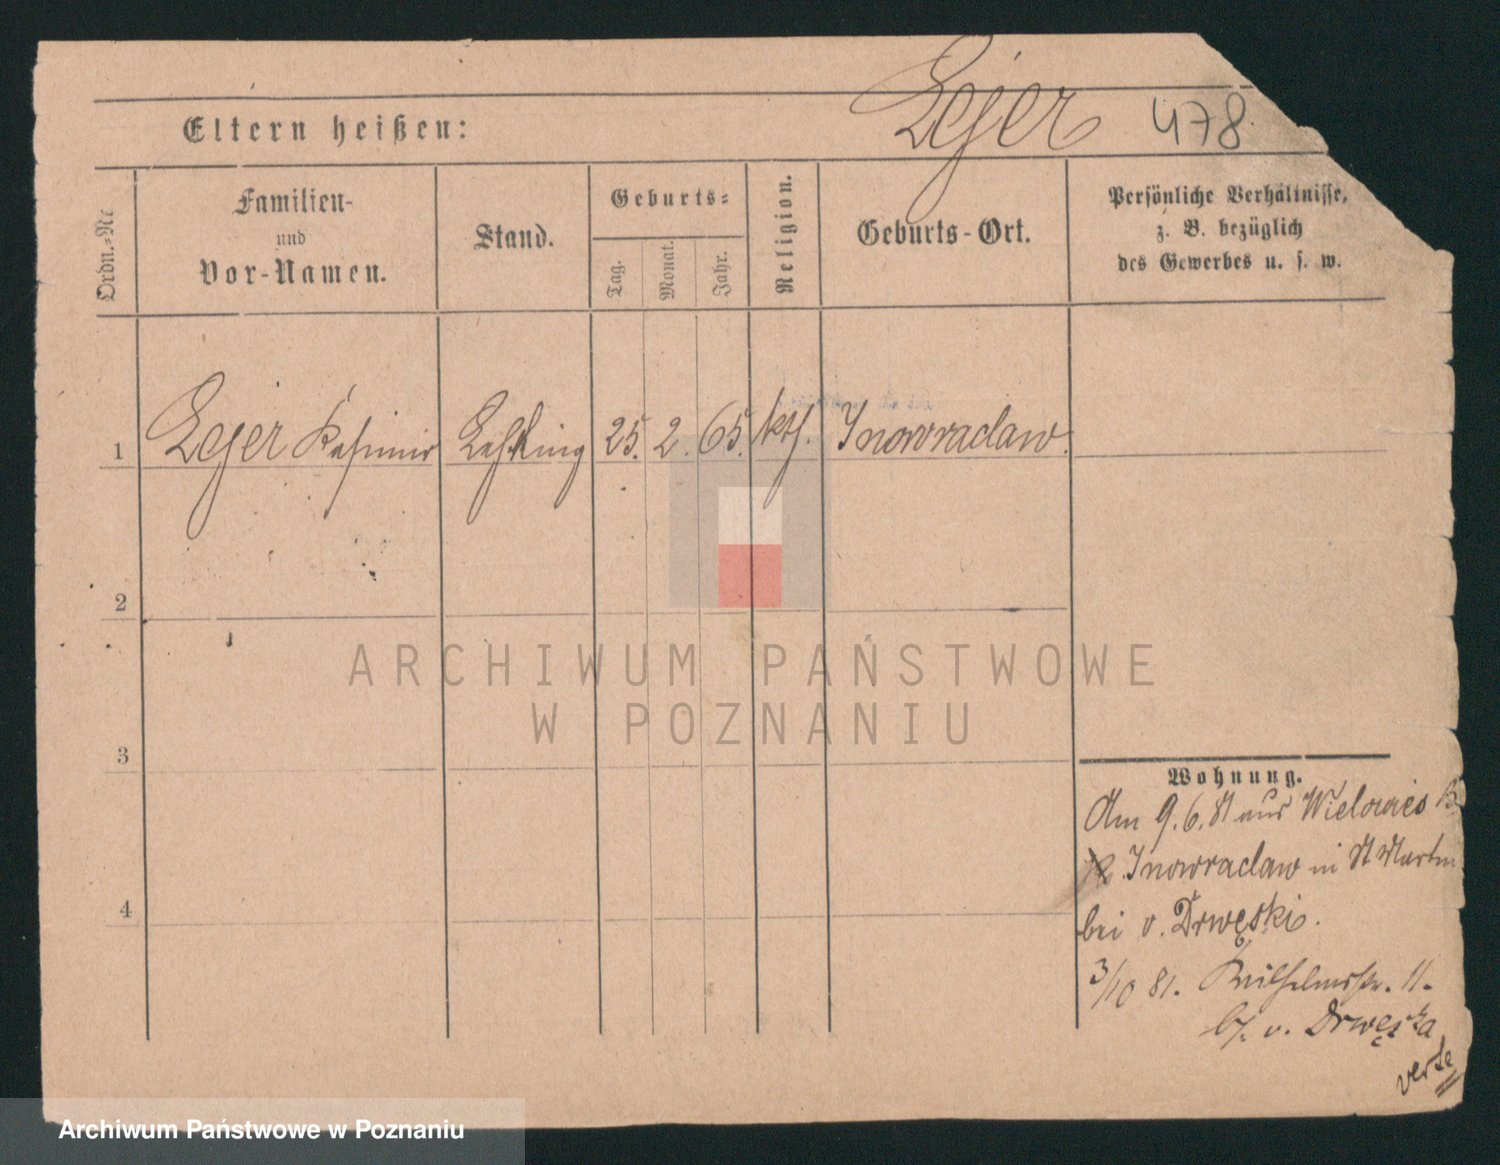 Lejer 478.
Eltern heißen:
Ordn.=Nr
Familien-
und
Vor-Namen.
Stand.
Geburts=
Tag.
Monat.
Jahr.
Religion.
Geburts-Ort.
Persönliche Verhältnisse,
z. B. bezüglich
des Gewerbes u. s. w.
1 Lejer Kasimir Lehrling 25. 2. 65. kth. Inowraclaw.
2
3
4
Wohnung.
Am 9.6.81 aus Wielowies
Inowraclaw in St Martin
bei v. Drwęski.
3/10 81. Wilhelmstr. 11.
b/. v. Drwęska
verte
ARCHIWUM PAŃSTWOWE
W POZNANIU
Archiwum Państwowe w Poznaniu